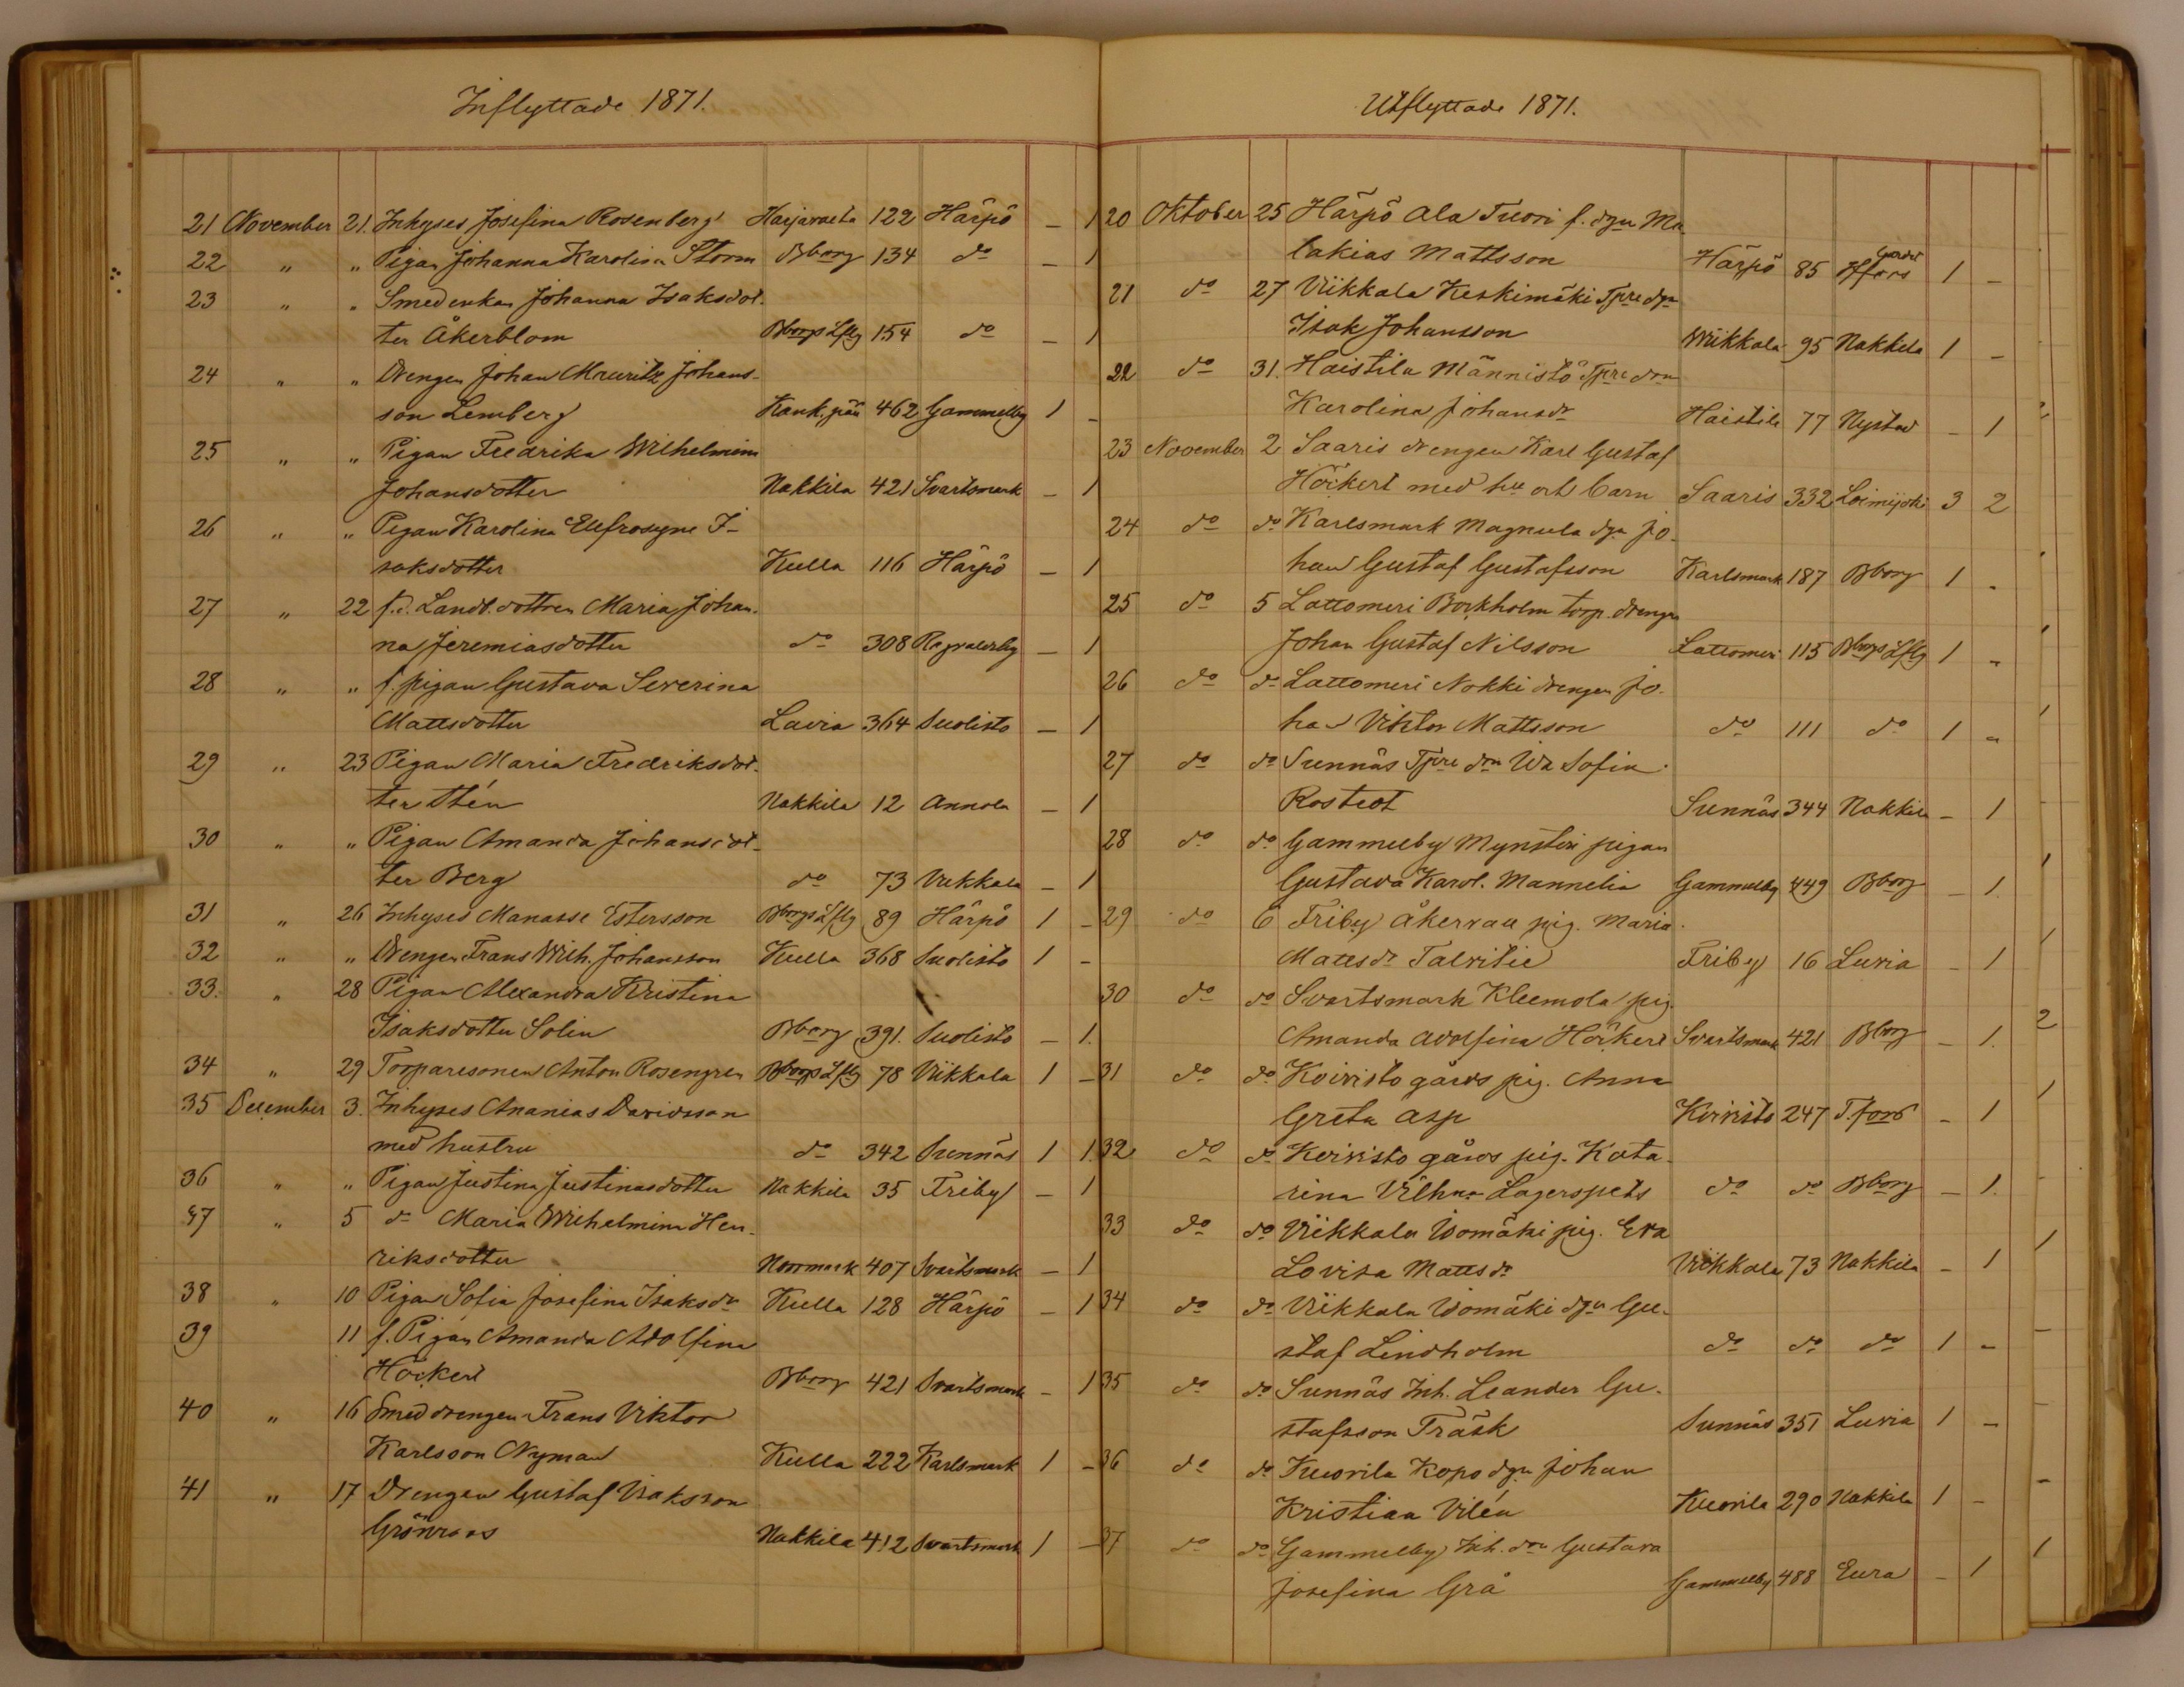 Inflyttade 1871.
21 November 21. Inhyses Josefina Rosenberg Harjavalta 122 Härpö — 1
22 " " Pigan Johanna Karolina Storm Bborg 134 do — 1
23 " " Smedenkan Johanna Isaksdot-
ter Åkerblom Bborgs Lflg 154 do — 1
24 " " Drengen Johan Mauritz Johans-
son Lemberg Kank.pää 462 Gammelby 1 —
25 " " Pigan Fredrika Wilhelmina
Johansdotter Nakkila 421 Svartsmark — 1
26 " " Pigan Karolina Eufrosyne I-
saksdotter Kulla 116 Härpö — 1
27 " 22 f.d. Landb. dottren Maria Johan-
na Jeremiasdotter do 308 Ragvaldsby — 1
28 " " f. pigan Gustava Severina
Mattsdotter Lavia 364 Suolisto — 1
29 " 23 Pigan Maria Fredriksdot-
ter Nakkila 12 Annola — 1
30 " " Pigan Amanda Johansdot-
ter Berg do 73 Viikkala — 1
31 " 26 Inhyses Manasse Estersson Bborgs Lflg 89 Härpö 1 —
32 " " Drengen Frans Wilh. Johansson Kulla 368 Suolisto 1 —
33. " 28 Pigan Alexandra Kristina
Isaksdotter Solin Bborg 391. Suolisto — 1.
34 " 29 Torparesonen Anton Rosengren Bborgs Lflg 78 Viikkala 1 —
35 December 3. Inhyses Ananias Davidsson
med hustru do 342 Sunnäs 1 1.
36 " " Pigan Justina Justinasdotter Nakkila 35 Friby — 1
37 " 5 do Maria Wilhelmina Hen-
riksdotter Norrmark 407 Svartsmark — 1
38 " 10 Pigan Sofia Josefina Isaksdr Kulla 128 Härpö — 1
39 11 f. Pigan Amanda Adolfina
Höckert Bborg 421 Svartsmark — 1
40 " 16 Smeddrengen Frans Viktor
Karlsson Nyman Kulla 222 Karlsmark 1 —
41 " 17 Drengen Gustaf Isaksson
Grönroos Nakkila 412 Svartsmark 1 —
Utflyttade 1871.
20 Oktober 25 Härpö Ala Tuori f. dgn Ma-
lakias Mattsson Härpö 85 Hfors 1 —
21 do 27 Viikkala Keskimäki Tpre dgn
Isak Johansson Wiikkala 95 Nakkila 1 —
22 do 31. Haistila Männistö Tpre drn
Karolina Johansdr Haistila 77 Nystad — 1
23 November 2 Saaris drengen Karl Gustaf
Höckert med hu och barn Saaris 332 Loimijoki 3 2
24 do do Karlsmark Magnula dgn Jo-
han Gustaf Gustafsson Karlsmark 187 Bborg 1 "
25 do 5 Lattomeri Bockholm torp. drengen
Johan Gustaf Nilsson Lattomeri 115 Bborgs Lflg 1 "
26 do do Lattomeri Nokki drengen Jo-
han Viktor Mattsson do 111 do 1 "
27 do do Sunnäs Tpre drn Ida Sofia
Rostedt Sunnäs 344 Nakkila — 1
28 do do Gammelby Mynsteri pigan
Gustava Karol. Mannelia Gammelby 449 Bborg — 1.
29 do 6 Friby Åkervall pig. Maria
Mattsdr Talvitie Friby 16 Luvia — 1
30 do do Svartsmark Kleemola pig.
Amanda Adolfina Höckert Svartsmark 421 Bborg — 1.
31 do do Koivisto gårds pig. Anna
Greta Asp Koivisto 247 T.fors — 1
32 do do Koivisto gårds pig. Kata-
rina Vilhna Lagerspets do do Bborg — 1.
33 do do Viikkala Isomäki pig. Eva
Lovisa Mattsdr Viikkala 73 Nakkila — 1
34 do do Viikkala Isomäki dgn Gu-
staf Lindholm do do do 1 —
35 do do Sunnäs Inh. Leander Gu-
stafsson Träsk Sunnäs 351 Luvia 1 —
36 do do Kuorila Kopo dgn Johan
Kristian Vilén Kuorila 290 Nakkila 1 —
37 do do Gammelby Inh. drn Gustava
Josefina Grå Gammelby 488 Eura — 1